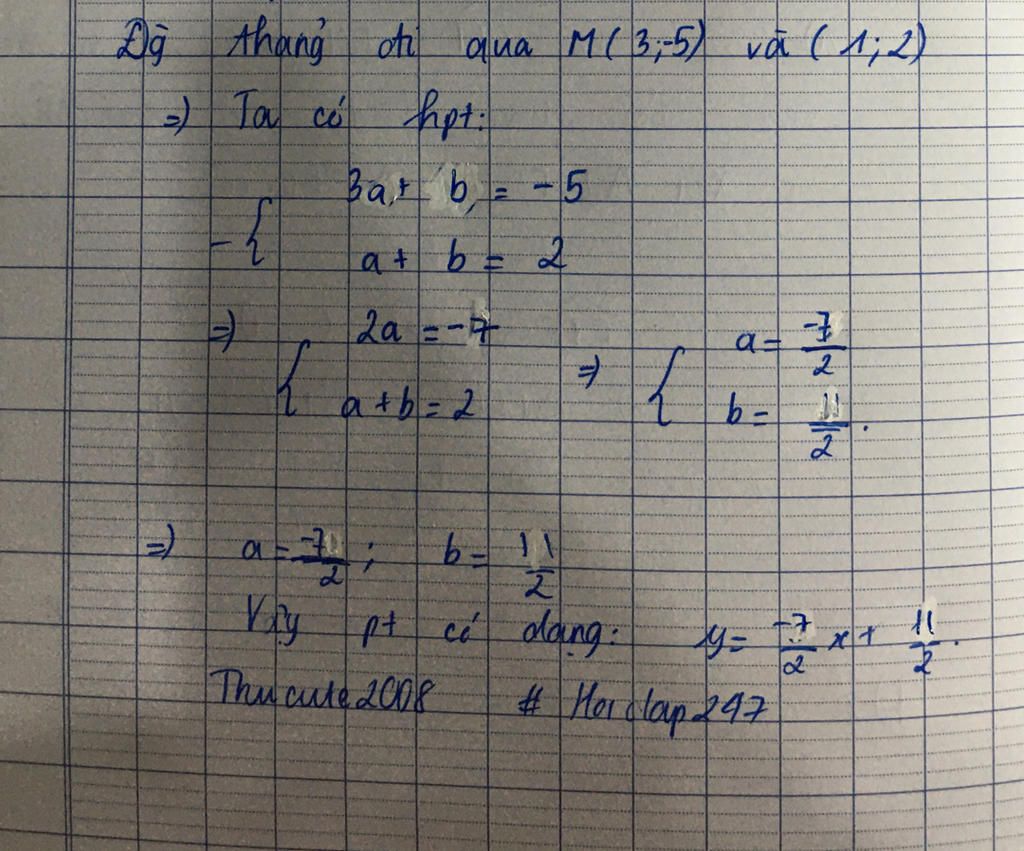 Đg thẳng đi qua M(3;-5) và (1;2)
=) Ta có hpt:
- { 3a + b = -5
a + b = 2
=) { 2a = -7 =) { a = -7/2
a + b = 2 b = 11/2.
=) a = -7/2 ; b = 11/2
Vậy pt có dạng: y = -7/2 x + 11/2.
Thucute2008 # Hoidap247